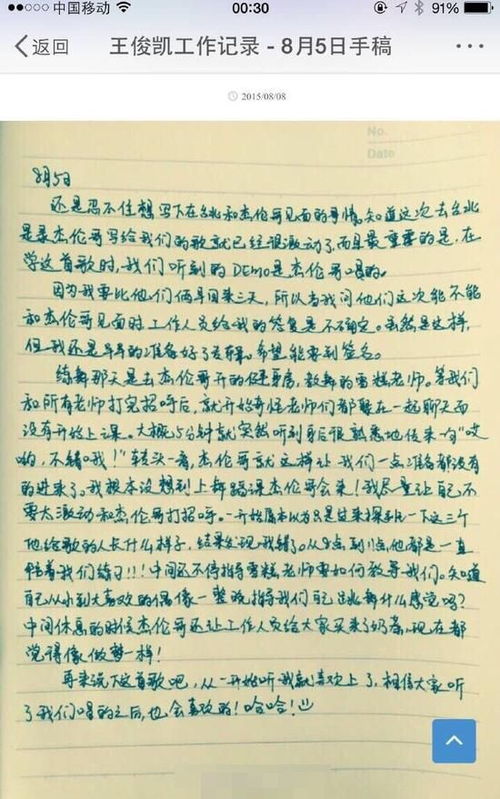 中国移动 00:30 91%
返回 王俊凯工作记录 - 8月5日手稿
2015/08/08
No.
Date
8月5日
还是忍不住想写下在台北和杰伦哥见面的事情。知道这次去台北
是录杰伦哥写给我们的歌就已经很激动了,而且最重要的是,在
学这首歌时,我们听到的DEMO是杰伦哥唱的。
因为我要比他们俩早回来三天,所以当我问他们这次能不能
和杰伦哥见面时工作人员给我的答复是不确定。虽然是这样,
但我还是早早的准备好了专辑。希望能要到签名。
练舞那天是去杰伦哥开的健身房,教舞的蛋糕老师。等我们
和所有老师打完招呼后,就开始奇怪老师们都聚在一起聊天而
没有开始上课。大概5分钟就突然听到身后很熟悉地传来一句“哎
哟,不错哦!”转头一看,杰伦哥就这样让我们一点准备都没有
的进来了。我根本没想到上舞蹈课杰伦哥会来!我尽量让自己不
要太激动和杰伦哥打招呼。一开始原本以为只是过来探班一下这三个
他给歌的人长什么样子,结果发现我错了。从9点到1点,他都是一直
陪着我们练习!!!中间还不停指导蛋糕老师要如何教导我们。知道
自己从小到大喜欢的偶像一整晚指导我们自己跳舞什么感觉吗?
中间休息的时候杰伦哥还让工作人员给大家买来了奶茶,现在都
觉得像做梦一样!
再来说下这首歌吧,从一开始听我就喜欢上了,相信大家听
了我们唱的之后,也会喜欢的!哈哈!